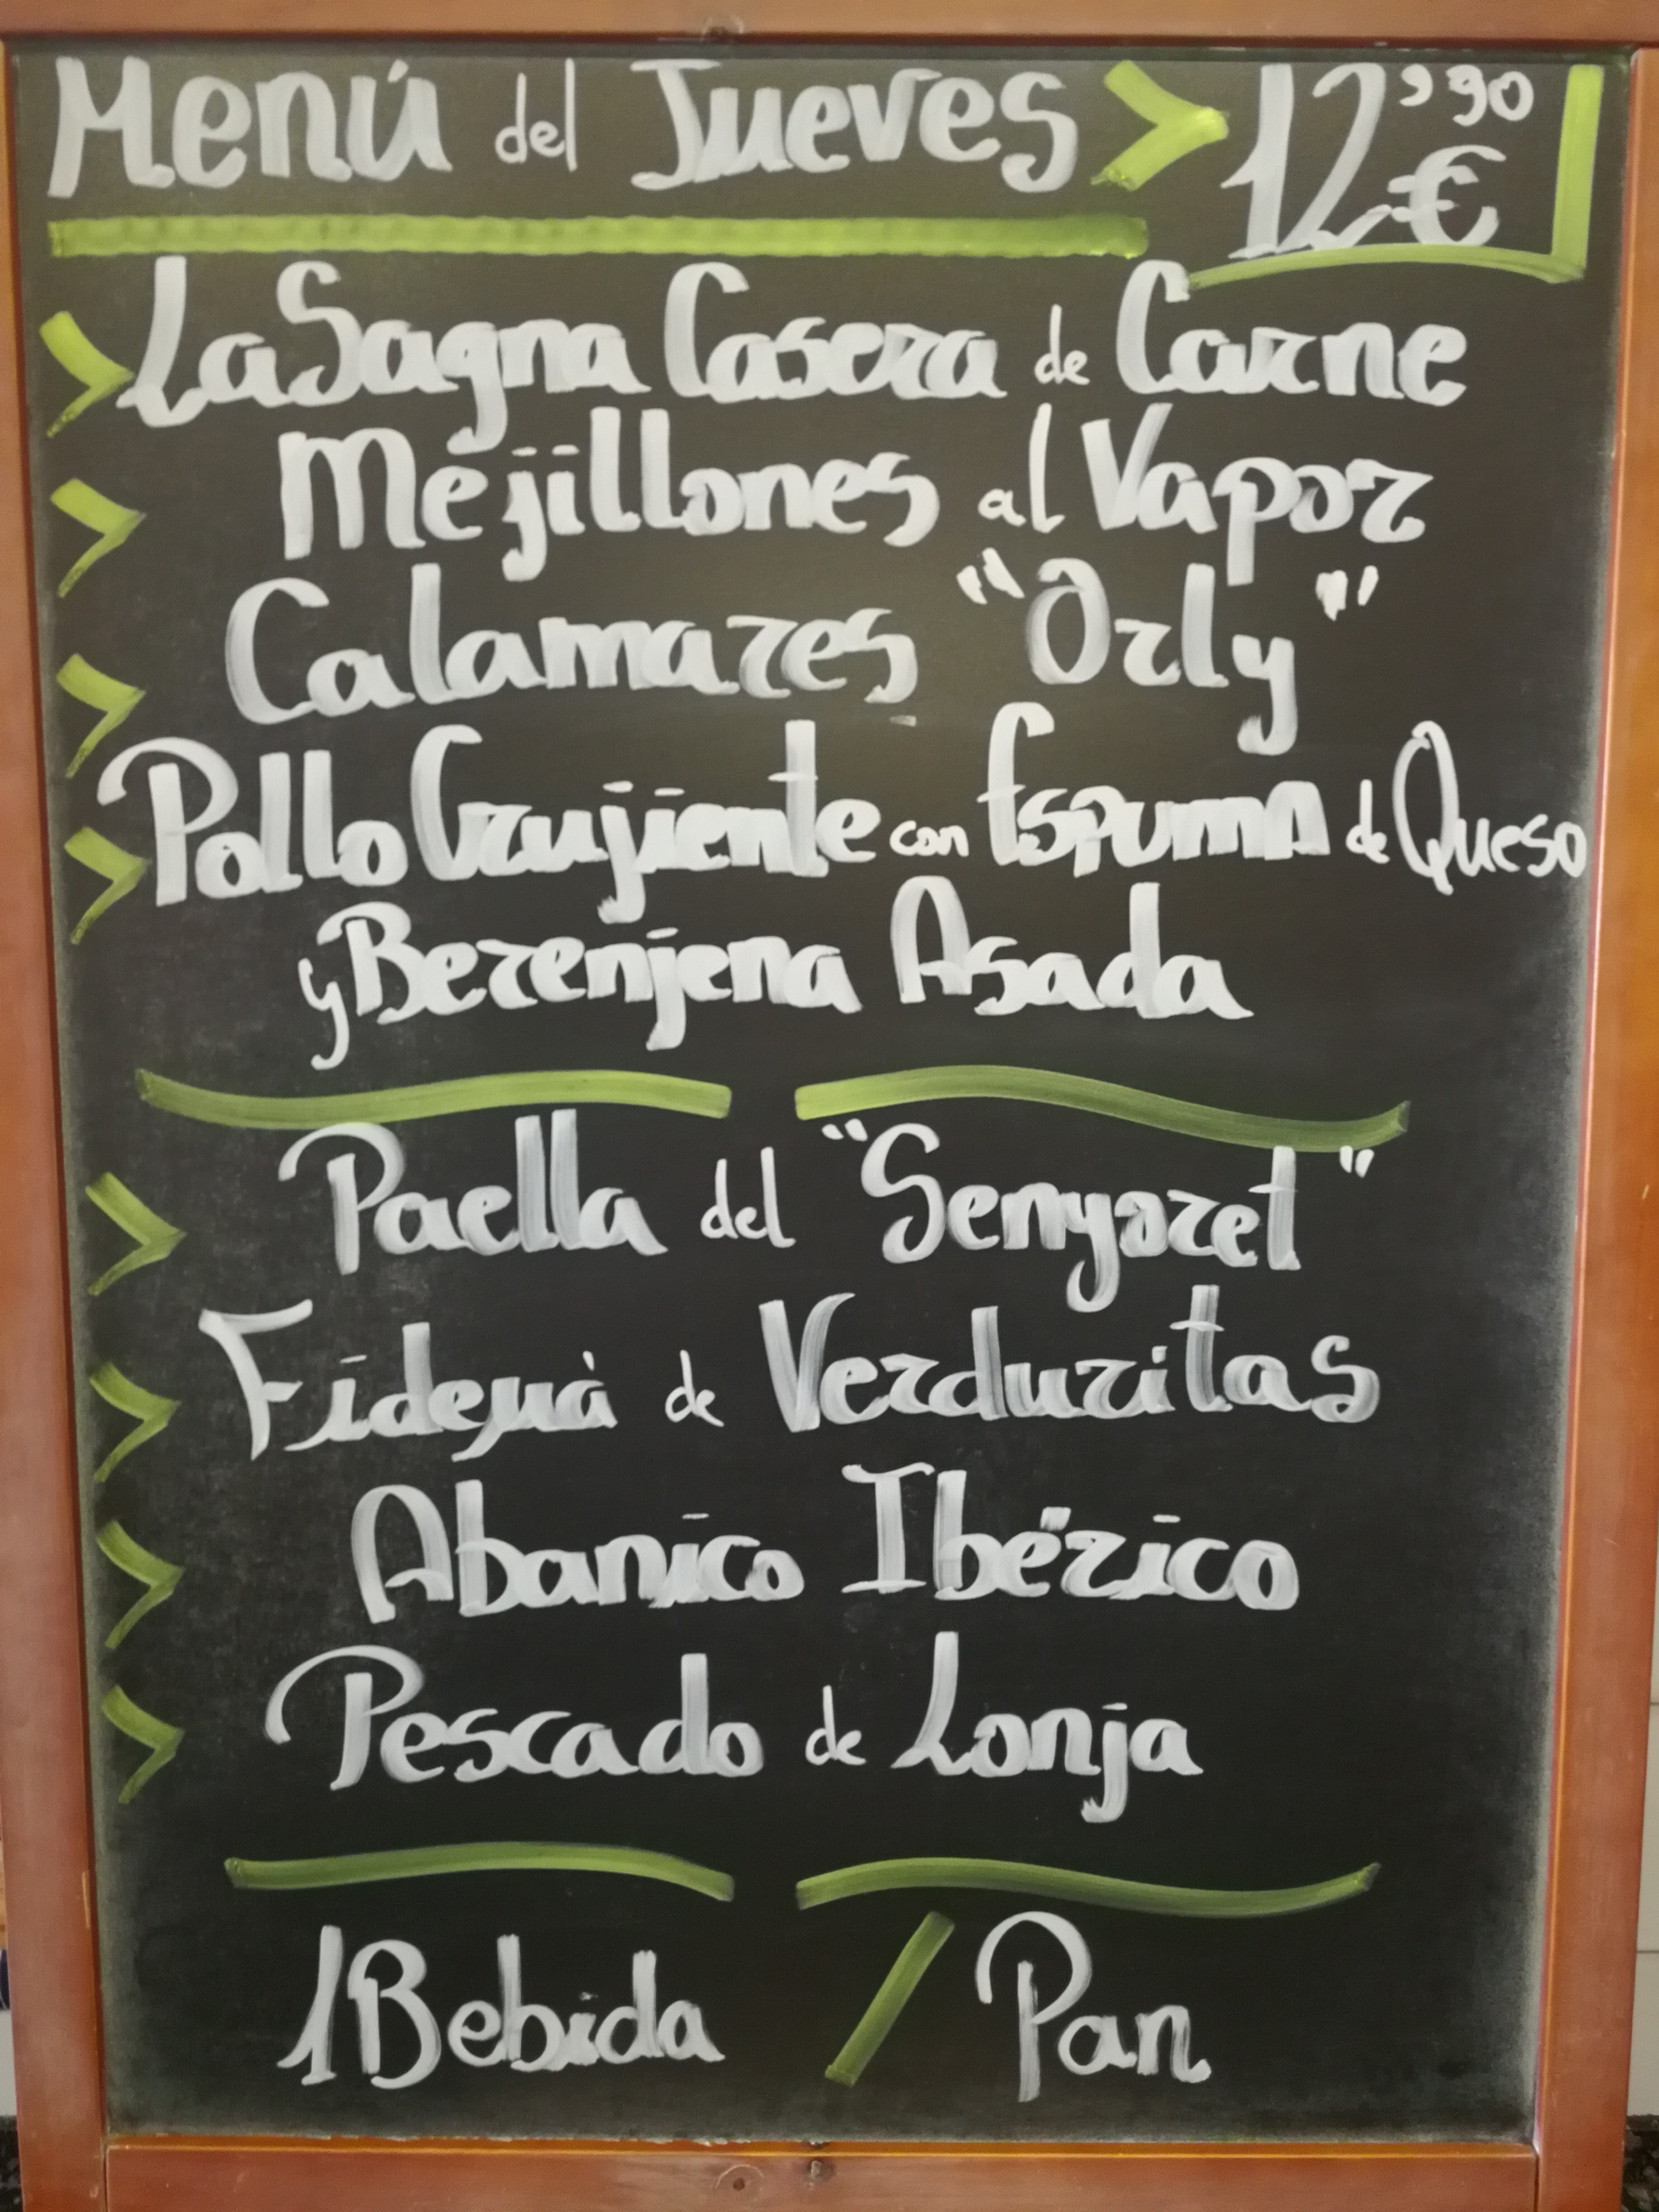 Menú del Jueves 12'90 €
LaSagna Casera de Carne
Mejillones al Vapor
Calamares "Orly"
Pollo Crujiente con Espuma de Queso
y Berenjena Asada
Paella del "Senyoret"
Fideuà de Verduritas
Abanico Ibérico
Pescado de Lonja
1 Bebida / Pan